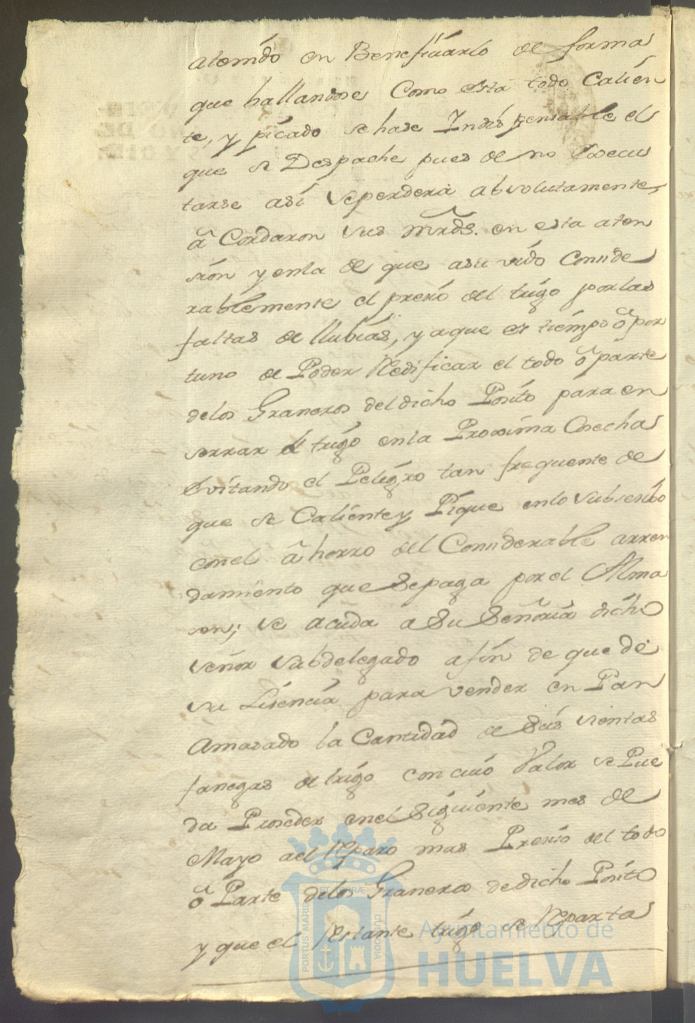 atenido en Beneficiarlo de forma
que hallandose como esta todo calien
te, y picado se hase Indispensable el
que se Despache pues de no Execu
tarse asi se perdera absolutamente
acordaron sus mrds. en esta aten
sion y en la de que a su vido conside
rablemente el presio del trigo por las
faltas de llubias, y a que es tiempo opor
tuno de Poder Redificar el todo o parte
de los Graneros del dicho Posito para en
serrar el trigo en la Proxima Cosecha
evitando el Peligro tan frequente de
que se Caliente y Pique en lo subsesibo
con el ahorro del Considerable arren
damiento que se paga por el Alma
sen; se acuda a Su Señoria dicho
señor subdelegado a fin de que dé
su Lisencia para vender en Pan
Amasado la Cantidad de seis sientas
fanegas de trigo con cuio Valor se Pue
da Proseder en el siguiente mes de
Mayo a el Reparo mas Presio del todo
o Parte de los Graneros de dicho Posito
y que el Restante trigo se Reparta
Ayuntamiento de
HUELVA